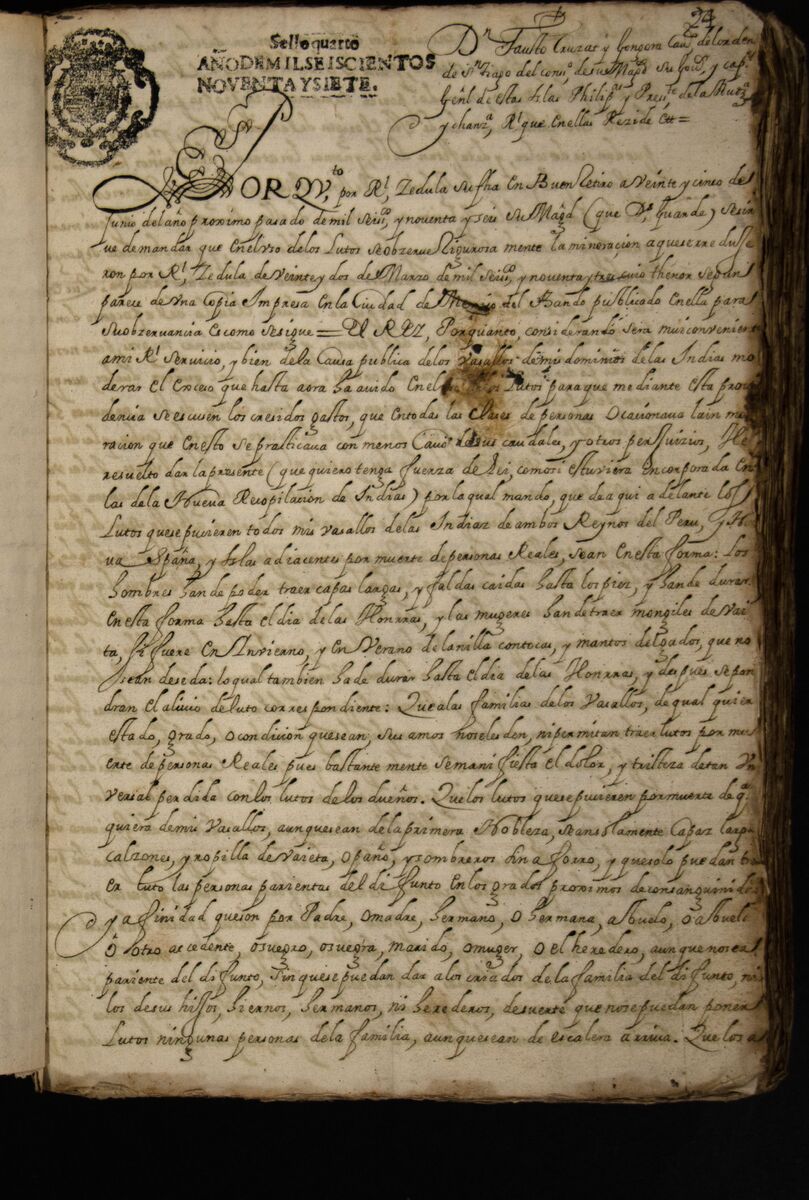 24
Sello quarto
AÑO DE MIL SEISCIENTOS
NOVENTA Y SIETE.
Dn Fausto Cruzat y Gongora Cauo del orden
de Stiago del conso de su Magd su Gou y capn
Genl de estas Islas Philips y Preste de la Auda
y chanza Rl que en ellas Rezide etta =
POR QVto por Rl Zedula su fha en Buen Retiro a Veinte y cinco de
Junio del año proximo pasado de mil Seisos y noventa y seis su Magd (que Ds Guarde) se sir
ve de mandar que en el vso de los Lutos se obzerue Rigurosa mente la minoracion a que se rreduSSe
ron por Rl Zedula de Veinte y dos de Marzo de mil seisos y noventa y tres cuio thenor segun
pareze de vna Copia Impresa en la Ciudad de Mexico del Bando publicado en ella para
su obzeruancia es como se sigue = El REY, Por quanto, considerando sera mui conveniente
a mi Rl Servicio, y bien de la Causa publica de los vasallos de mis dominios de las Indias mo
derar el exceso que hasta aora ha avido en el Lutos para que mediante esta provi
dencia se escusen los cresidos gastos, que en todas las clases de personas ocacionaua la in mo
racion que en esto se prasticaua con menos Cauo de sus caudales, y otros perJuizios, He
resuelto dar la presente (que quiero tenga fuerza de Lei, como si estuviera encorporada en
las de la Nueva Recopilacion de Indias) por la qual mando, que de aqui adelante los
Lutos que se pusieren todos mis vasallos de las Indias de ambos Reynos del Peru, y Nue
va España, y Islas adiacentes por muerte de personas Reales, sean en esta forma: Los
hombres han de poder traer capas largas, y faldas caidas hasta los pies, y han de durar
en esta forma hasta el dia de las Honrras, y las mugeres han de traer mongiles de vaie
ta, si fuere en Invierno, y en Verano de lanilla con tocas, y mantos delgados, que no
sean de seda: lo qual tambien ha de durar hasta el dia de las Honrras, y despues se pon
dran el alivio de luto correspondiente: Que a las familias de los Vasallos, de qual quier
estado, grado, o condicion que sean, sus amos no seles den, ni permitan traer lutos por mu
erte de personas Reales pues bastante mente se manifiesta el dolor, y tristeza de tan Vni
versal perdida con los lutos de los dueños. Que los lutos que se pusieren por muerte de qual
quiera de mis Vasallos, aunque sean de la primera Nobleza, sean solamente Capas largas
calzones, y ropilla de Vaieta, o paño, y sombreros sin aforro, y que solo puedan tra
er luto las personas parientas del difunto en los grados proximos de consanguinidad
y afinidad que son por Padre, o madre, hermano, o hermana, abuelo, o abuela
ô otro ascedente, o suegro, o suegra, marido, o muger, o el heredero, aunque no sea
pariente del difunto, sin que se puedan dar a los criados de la familia del difunto, ni
los de sus hiJos, hiernos, hermanos, ni herederos, de suerte que no se puedan poner
Lutos ningunas personas de la familia, aunque sean de escalera arriva. Que los a